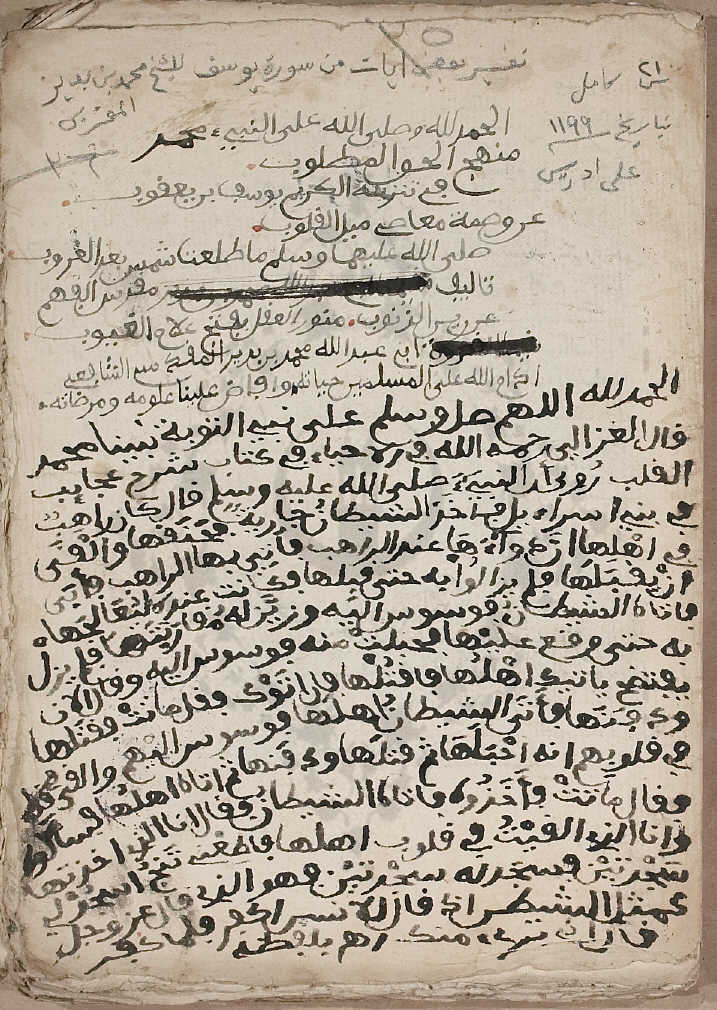 تفسير بعض ايات من سورة يوسف للشيخ محمد بن يدير
المقرئ
٢١ ش كامل
بتاريخ ١١٩٩
على ادريس
الحمد لله وصلى الله على النبيء محمد
منهج الحق المطلوب
في تنزيه الكريم يوسف بن يعقوب
عن وصمة معاصي ميل القلوب
صلى الله عليهما وسلم ما طلعنا شمس بعد الغروب
تاليف مقدس الفهم
عن رين الذنوب منور العقل بفتح علام الغيوب
ابي عبد الله محمد بن يدير التلمساني
ادام الله على المسلمين حياته وافاض علينا علومه ومرضاته
الحمد لله اللهم صل وسلم على نبي التوبة نبينا محمد
قال الغزالي رحمه الله في الاحياء في كتاب شرح عجايب
القلب روي أن النبيء صلى الله عليه وسلم قال كان راهب
في بني اسراءيل فأخذ الشيطان جارية فخنقها وألقى
في أهلها أن دواءها عند الراهب فأتي بها الراهب فأبى
أن يقبلها فلم يزالوا به حتى قبلها فكانت عنده ليعالجها
فأتاه الشيطان فوسوس إليه وزين له مقاربتها فلم يزل
به حتى وقع عليها فحملت منه فوسوس إليه وقال الآن
تفتضح يأتيك أهلها فاقتلها فإن أتوك فقل ماتت فقتلها
ودفنها فأتى الشيطان أهلها فوسوس إليهم وألقى
في قلوبهم أنه أحبلها ثم قتلها ودفنها ثم أتاه أهلها يسألونه
فقال ماتت فأخذوه فأتاه الشيطان فقال أنا الذي أخذتها
وأنا الذي ألقيت في قلوب أهلها فأطعني تنج اسجد لي
سجدتين فسجد له سجدتين فهو الذي قال عز وجل
كمثل الشيطان إذ قال للإنسان اكفر فلما كفر
قال إني بريء منك اهـ بلفظه